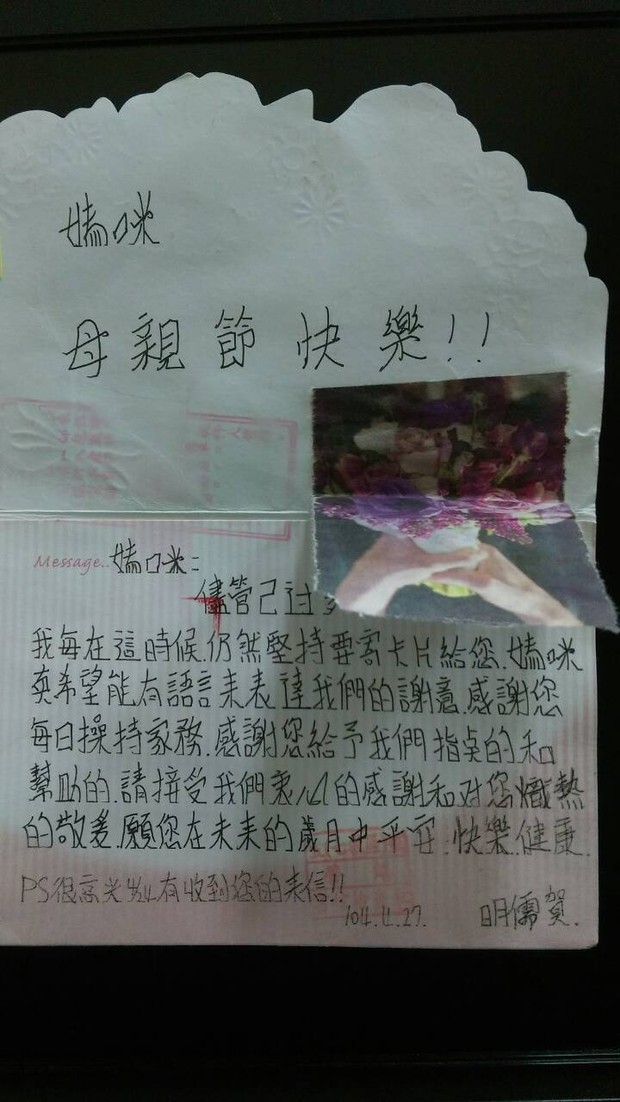 媽咪
母親節快樂!!
Message.. 媽咪:
儘管已过
我每在這時候.仍然堅持要寄卡片給您.媽咪
真希望能有語言來表達我們的謝意.感謝您
每日操持家務.感謝您給予我們指点的和
幫助的.請接受我們衷心的感謝和对您熾熱
的敬爱.願您在未來的歲月中平安.快樂.健康.
PS很高兴有收到您的来信!!
104.4.27. 明儒賀.